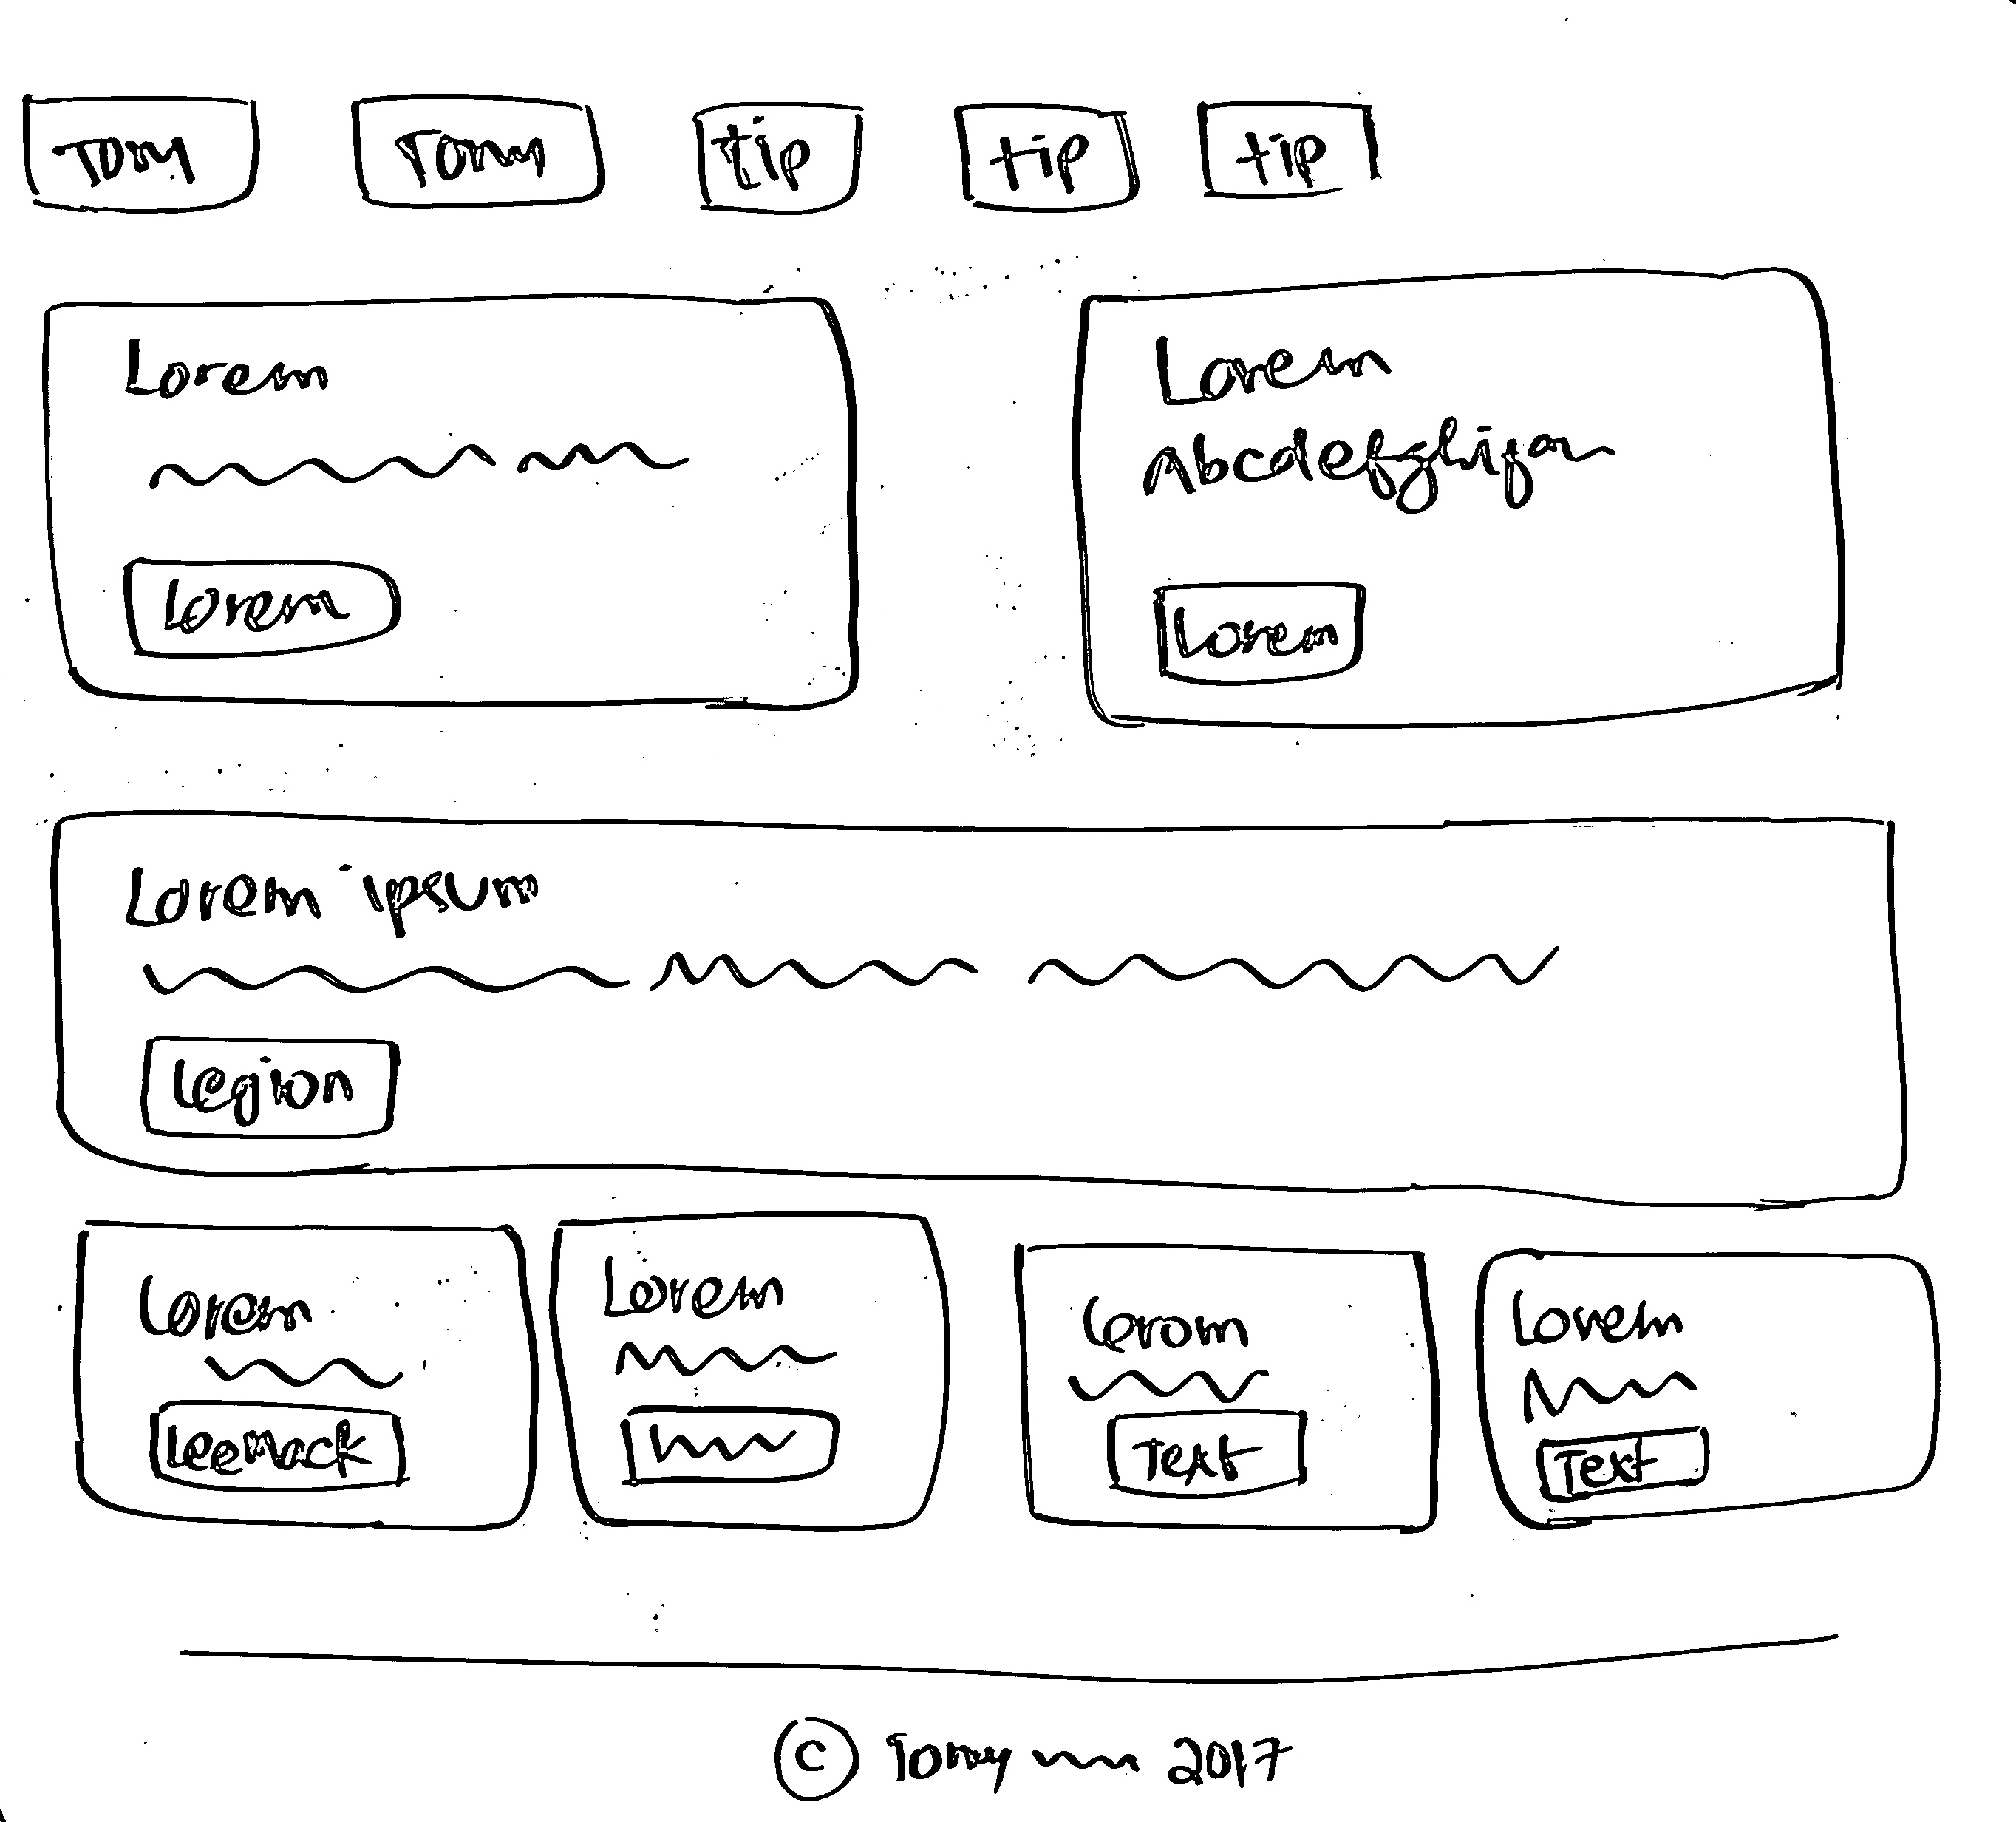 Tony
Tony
tip
tip
tip
Lorem
Lorem
Lorem
Abcdefghij
Lorem
Lorem ipsum
Legion
Lorem
Leemack
Lorem
Lorom
Text
Lorem
Text
© Tony 2017